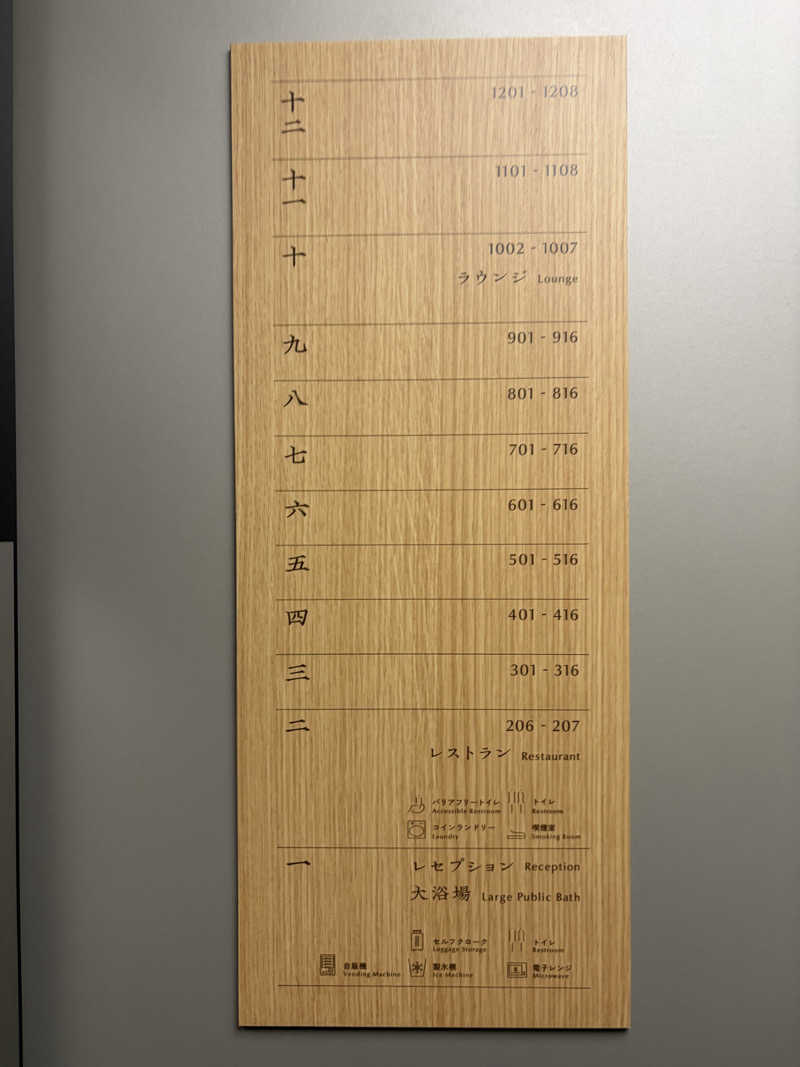 十二 1201 - 1208
十一 1101 - 1108
十 1002 - 1007
ラウンジ Lounge
九 901 - 916
八 801 - 816
七 701 - 716
六 601 - 616
五 501 - 516
四 401 - 416
三 301 - 316
二 206 - 207
レストラン Restaurant
バリアフリートイレ トイレ
Accessible Restroom Restroom
コインランドリー 喫煙室
Laundry Smoking Room
一 レセプション Reception
大浴場 Large Public Bath
セルフクローク トイレ
Luggage Storage Restroom
自販機 製氷機 電子レンジ
Vending Machine Ice Machine Microwave